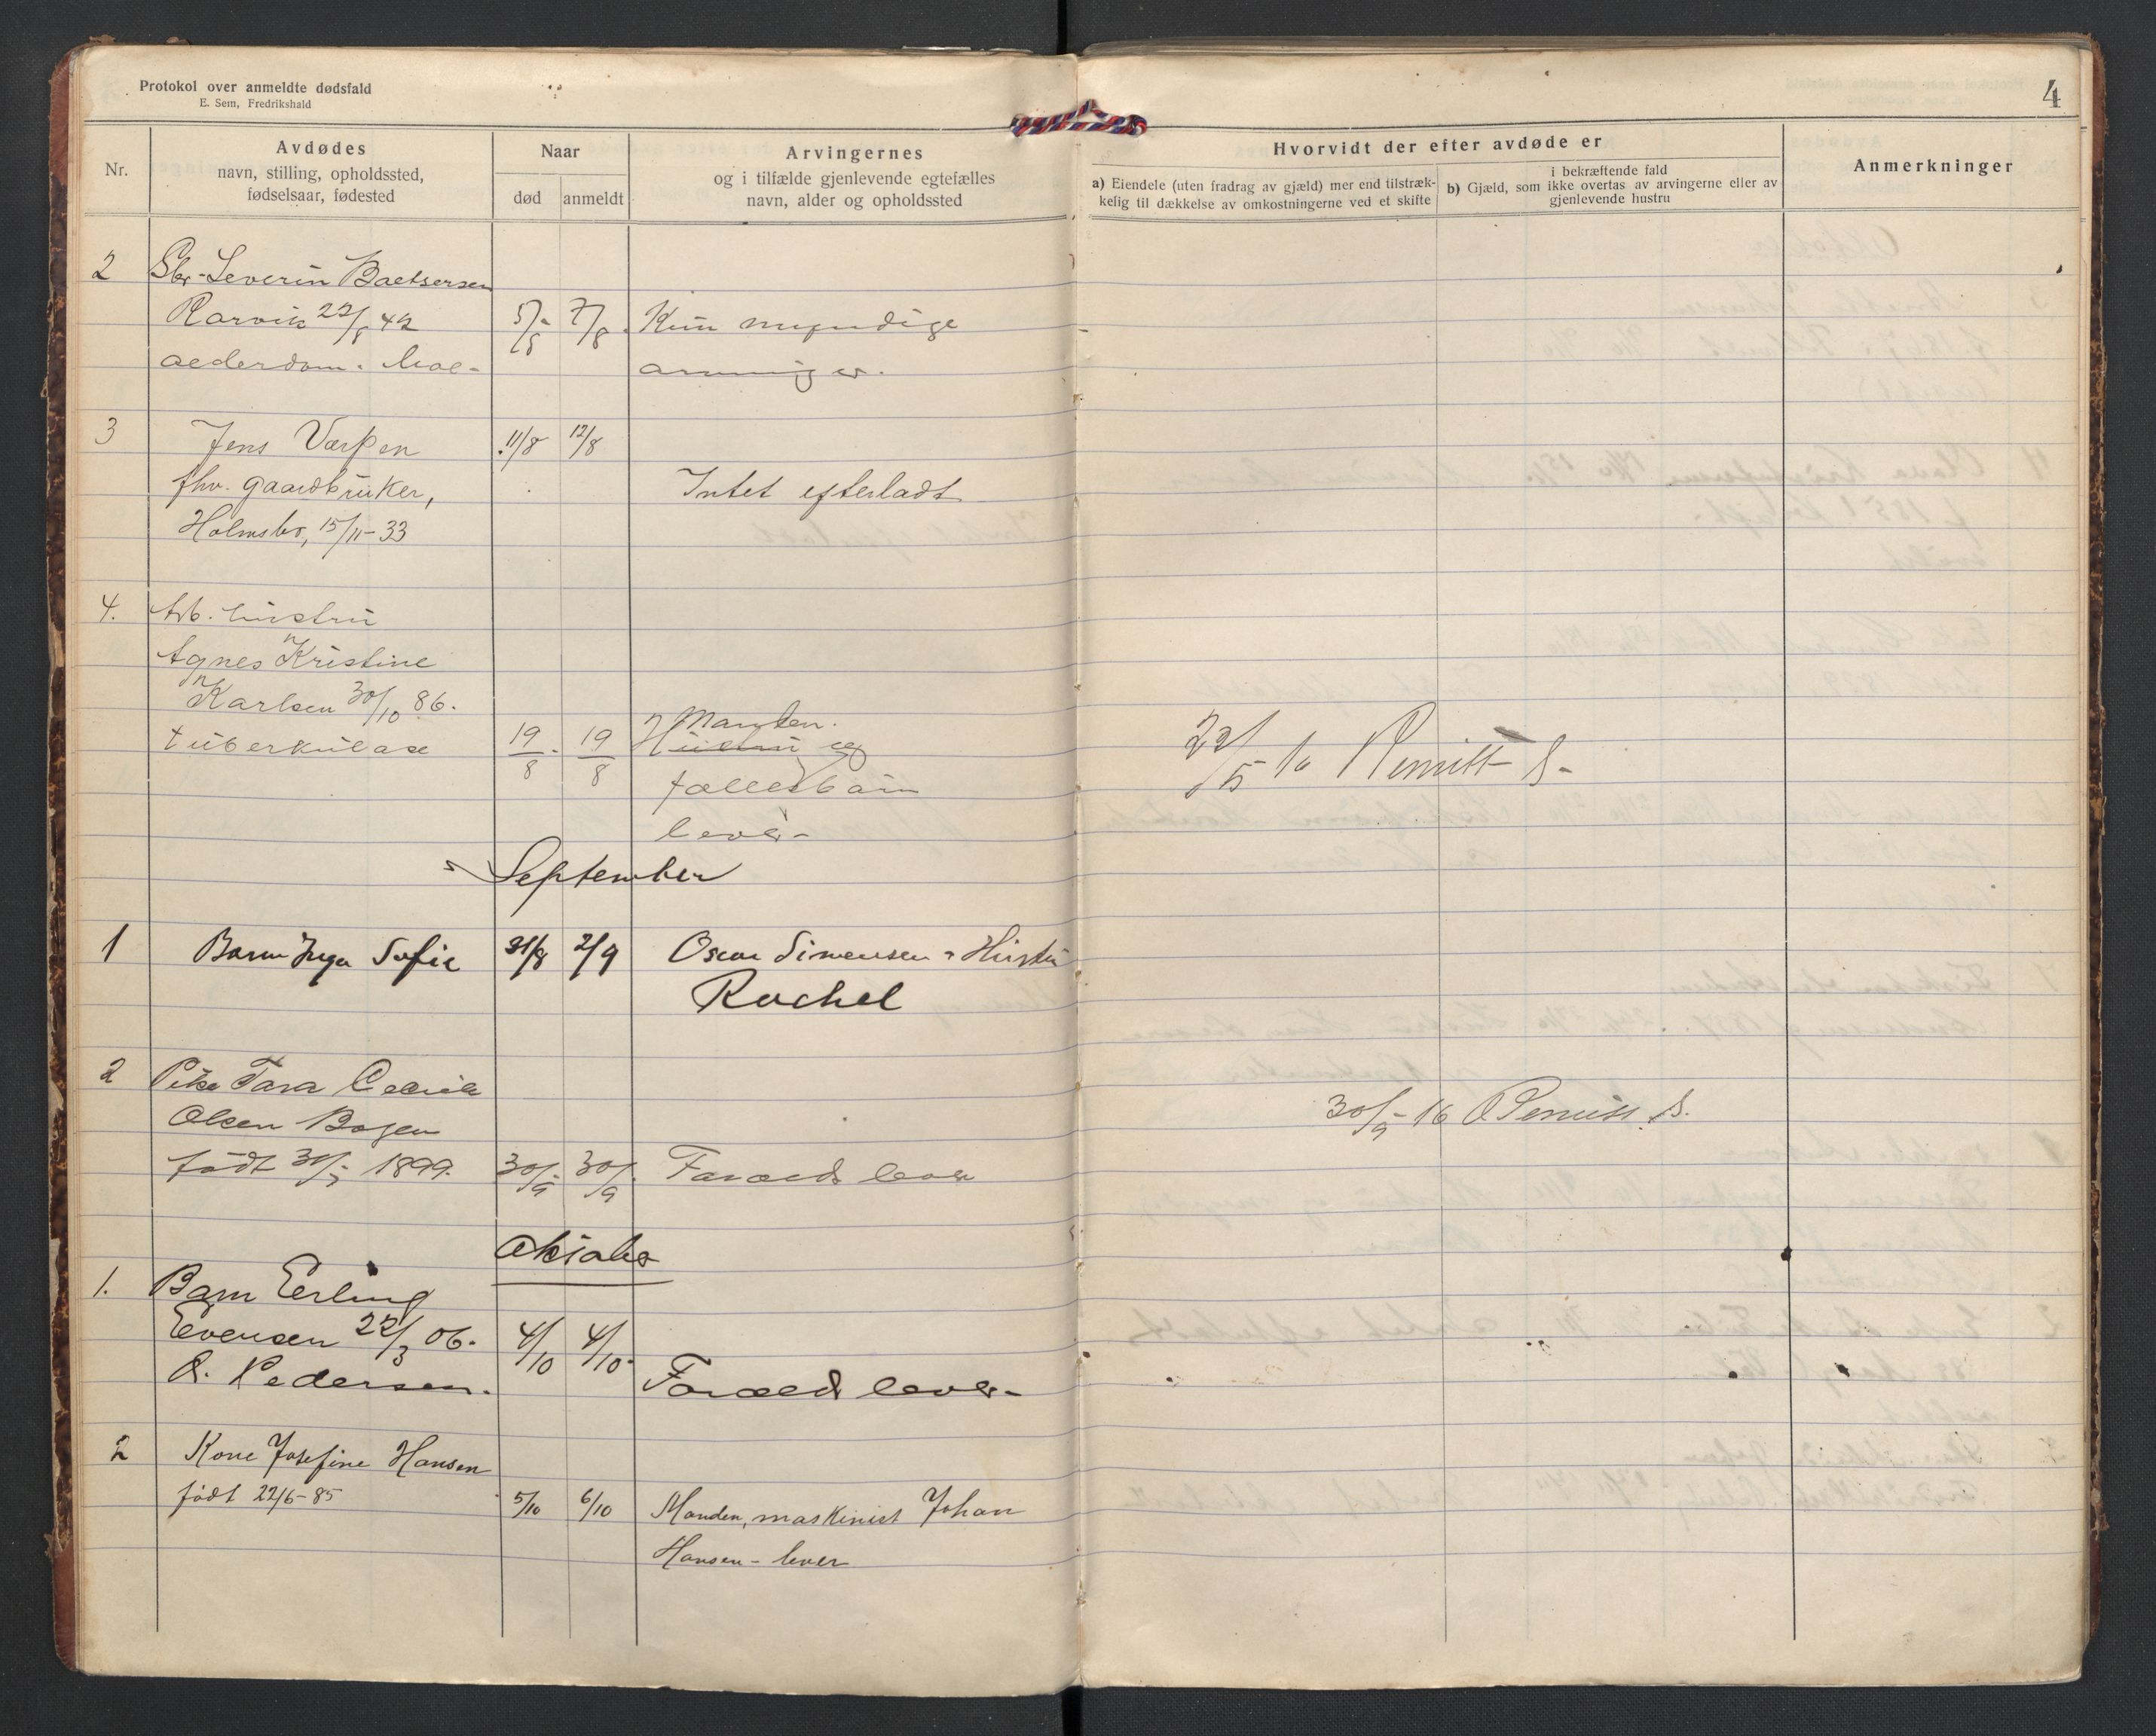 Protokol over anmeldte dødsfald
E. Sem, Fredrikshald
4
Nr.
Avdødes
navn, stilling, opholdssted,
fødselsaar, fødested
Naar
død anmeldt
Arvingernes
og i tilfælde gjenlevende egtefælles
navn, alder og opholdssted
Hvorvidt der efter avdøde er
a) Eiendele (uten fradrag av gjæld) mer end tilstræk-
kelig til dækkelse av omkostningerne ved et skifte
i bekræftende fald
b) Gjæld, som ikke overtas av arvingerne eller av
gjenlevende hustru
Anmerkninger
2 Severin
Rarvik 22/8 42 5/8 7/8 Kun myndige
alderdom. arvinger.
3 Jens Varpen 11/8 12/8
fhv. gaardbruker, Intet efterladt
Holmsbo, 15/11-33
4. Arb. hustru
Agnes Kristine
Karlsen 30/10 86. Manden.
tuberkulose 19/8 19/8 Hustru og 22/5 16 Remitt S-
fællesbarn
lever-
September
1 Barn Inga Sofie 31/8 2/9 Oscar Simensen Hustru
Rachel
2 Pike
Olsen Bogen 30/9-16 Remitt S.
født 1899. 30/9 30/9 Foræld lever
Oktober
1. Barn Erling
Evensen 22/3 06. 4/10 4/10
O. Pedersen. Foræld lever-
2 Kone Josefine Hansen
født 22/6-85 5/10 6/10 Manden, maskinist Johan
Hansen - lever